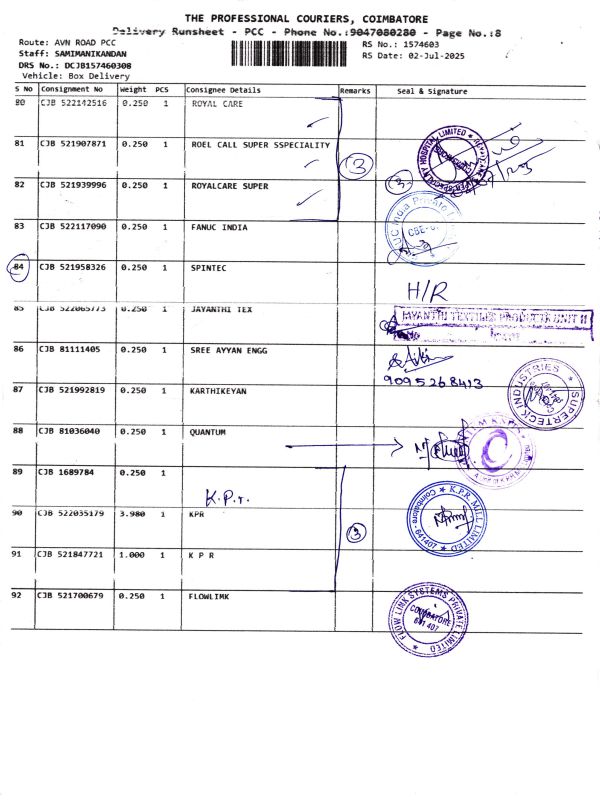 THE PROFESSIONAL COURIERS, COIMBATORE
Delivery Runsheet - PCC - Phone No.:9047080280 - Page No.:8
Route: AVN ROAD PCC
RS No.: 1574603
Staff: SAMIMANIKANDAN
RS Date: 02-Jul-2025
DRS No.: DCJB157460308
Vehicle: Box Delivery
S No Consignment No Weight PCS Consignee Details Remarks Seal & Signature
80 CJB 522142516 0.250 1 ROYAL CARE
81 CJB 521907871 0.250 1 ROEL CALL SUPER SSPECIALITY
3
82 CJB 521939996 0.250 1 ROYALCARE SUPER
3
83 CJB 522117090 0.250 1 FANUC INDIA
84 CJB 521958326 0.250 1 SPINTEC
H/R
85 CJB 522065773 0.250 1 JAYANTHI TEX
JAYANTHI TEXTILES PRODUCTS UNIT II
86 CJB 81111405 0.250 1 SREE AYYAN ENGG
9095268413
87 CJB 521992819 0.250 1 KARTHIKEYAN
SUPERTECK INDUSTRIES
88 CJB 81036040 0.250 1 QUANTUM
89 CJB 1689784 0.250 1
K.P.r.
90 CJB 522035179 3.980 1 KPR
K.P.R. MILL LIMITED
Coimbatore - 641407
3
91 CJB 521847721 1.000 1 K P R
92 CJB 521700679 0.250 1 FLOWLIMK
FLOW LINK SYSTEMS PRIVATE LIMITED
COIMBATORE
641 407